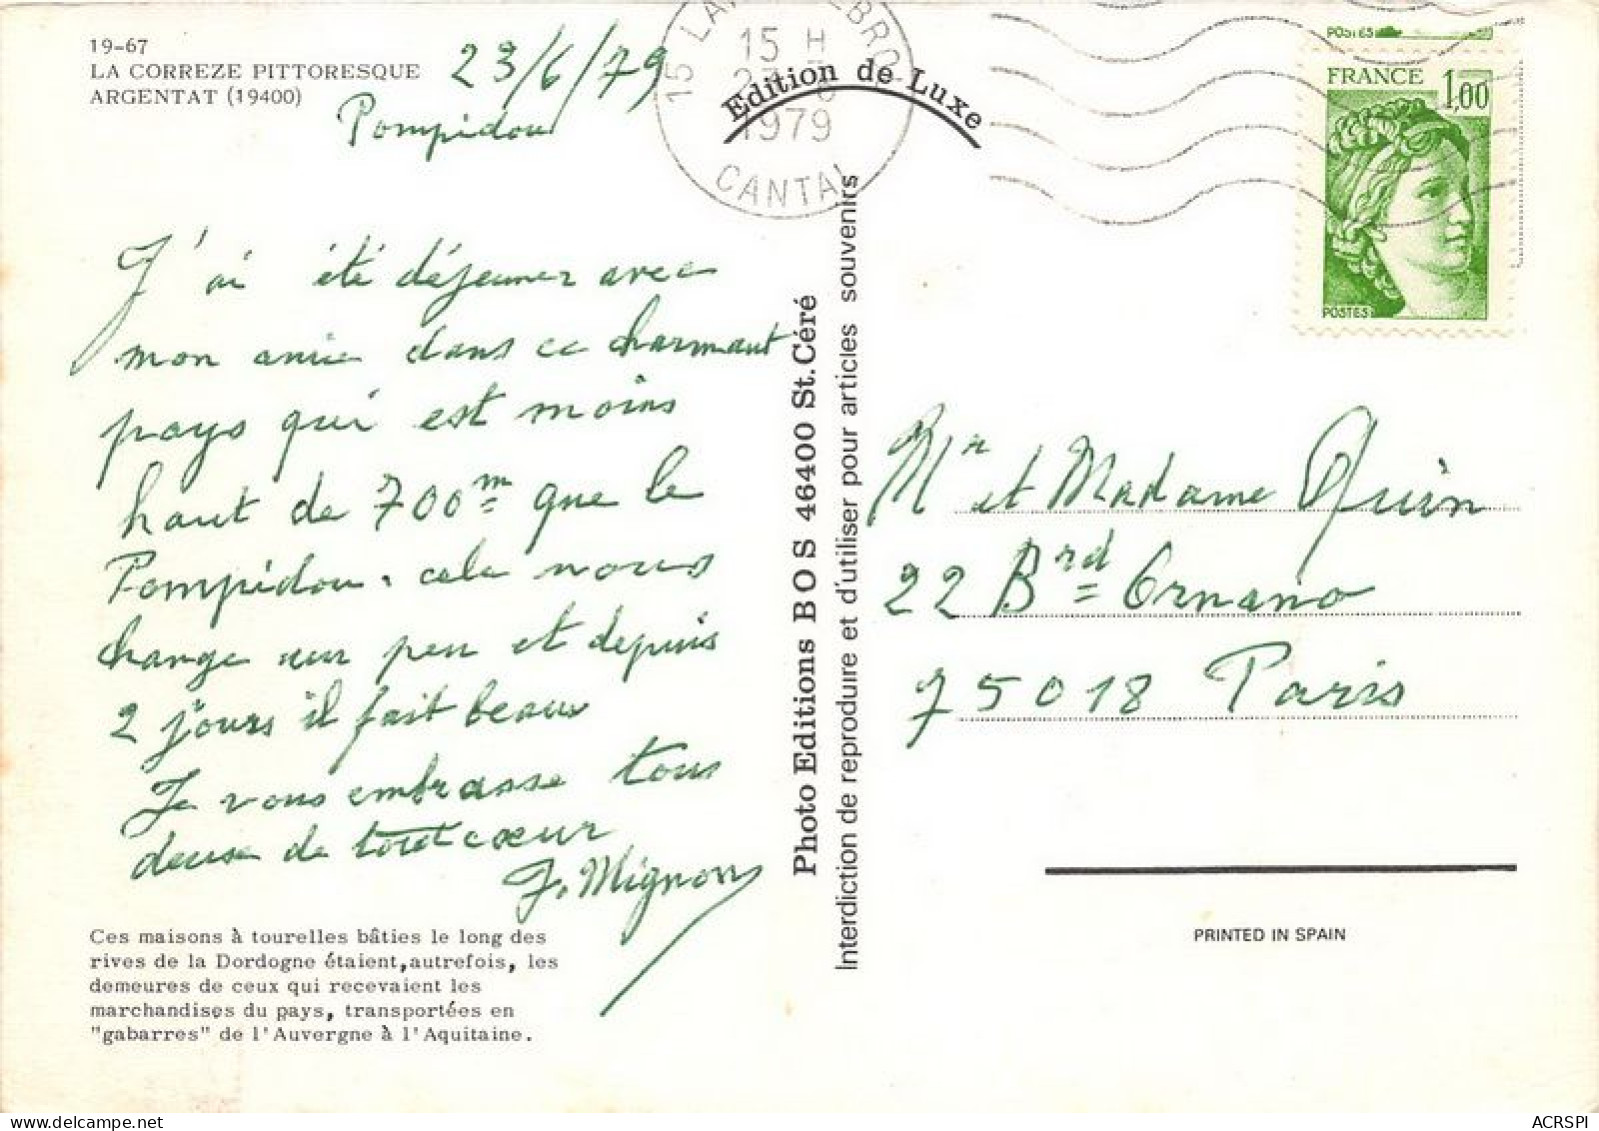 19-67
LA CORREZE PITTORESQUE
ARGENTAT (19400)
23/6/79
Pompidou
J'ai été déjeuner avec
mon amie dans ce charmant
pays qui est moins
haut de 700m que le
Pompidou. cela nous
change un peu et depuis
2 jours il fait beau
Je vous embrasse tous
deux de tout cœur
J. Mignon
Ces maisons à tourelles bâties le long des
rives de la Dordogne étaient, autrefois, les
demeures de ceux qui recevaient les
marchandises du pays, transportées en
"gabarres" de l'Auvergne à l'Aquitaine.
15 H
1979
15
CANTAL
Edition de Luxe
Photo Editions BOS 46400 St. Céré
Interdiction de reproduire et d'utiliser pour articles souvenirs
POSTES
FRANCE 1,00
POSTES
Mr et Madame Quin
22 Brd Ornano
75018 Paris
PRINTED IN SPAIN
ACRSPI